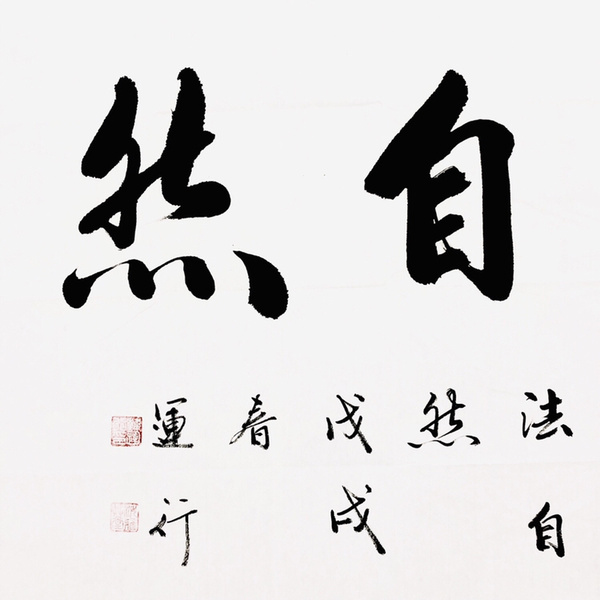 自然
法自
然
戊戌
春
運行